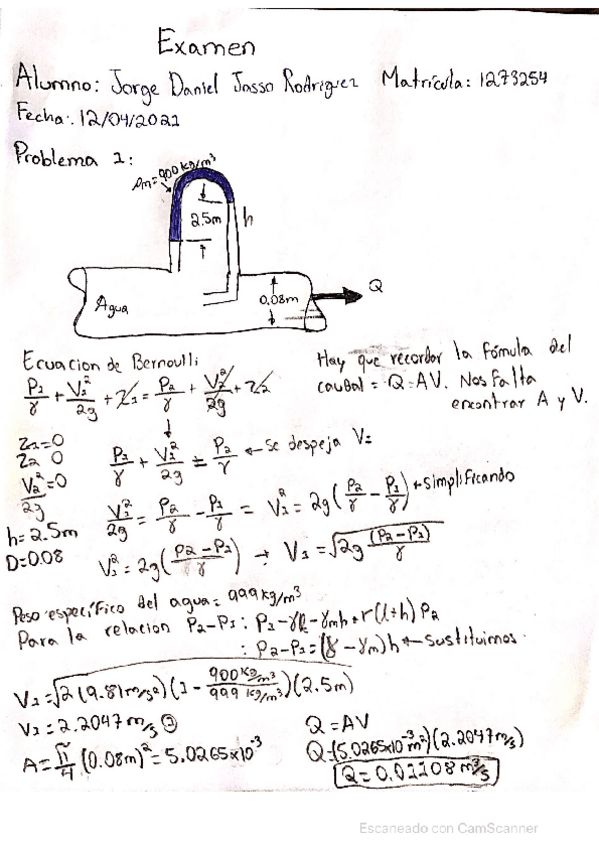 Examen
Alumno: Jorge Daniel Jasso Rodriguez Matrícula: 1273254
Fecha: 12/04/2021
Problema 1:
ρm=900 kg/m³
2.5m
h
Agua
0.08m
Q
Ecuacion de Bernoulli
P₁/γ + V₁²/2g + Z₁ = P₂/γ + V₂²/2g + Z₂
Hay que recordar la fómula del
caudal = Q=AV. Nos falta
encontrar A y V.
Z₁=0
Z₂ 0
V₂²/2g=0
h=2.5m
D=0.08
P₁/γ + V₁²/2g = P₂/γ ← se despeja V=
V₁²/2g = P₂/γ - P₁/γ = V₁² = 2g(P₂/γ - P₁/γ) ← simplificando
V₁² = 2g(P₂-P₁/γ) → V₁ = √2g (P₂-P₁)/γ
Peso específico del agua= 999 kg/m³
Para la relacion P₂-P₁: P₁-γl-γmh+r(l+h) P₂
: P₂-P₁=(γ-γm)h ← sustituimos.
V₁=√2(9.81m/s²)(1-900kg/m³/999 kg/m³)(2.5m)
V₁=2.2047 m/s
A=π/4 (0.08m)²=5.0265x10⁻³
Q=AV
Q=(5.0265x10⁻³m²)(2.2047m/s)
Q=0.01108 m³/s
Escaneado con CamScanner